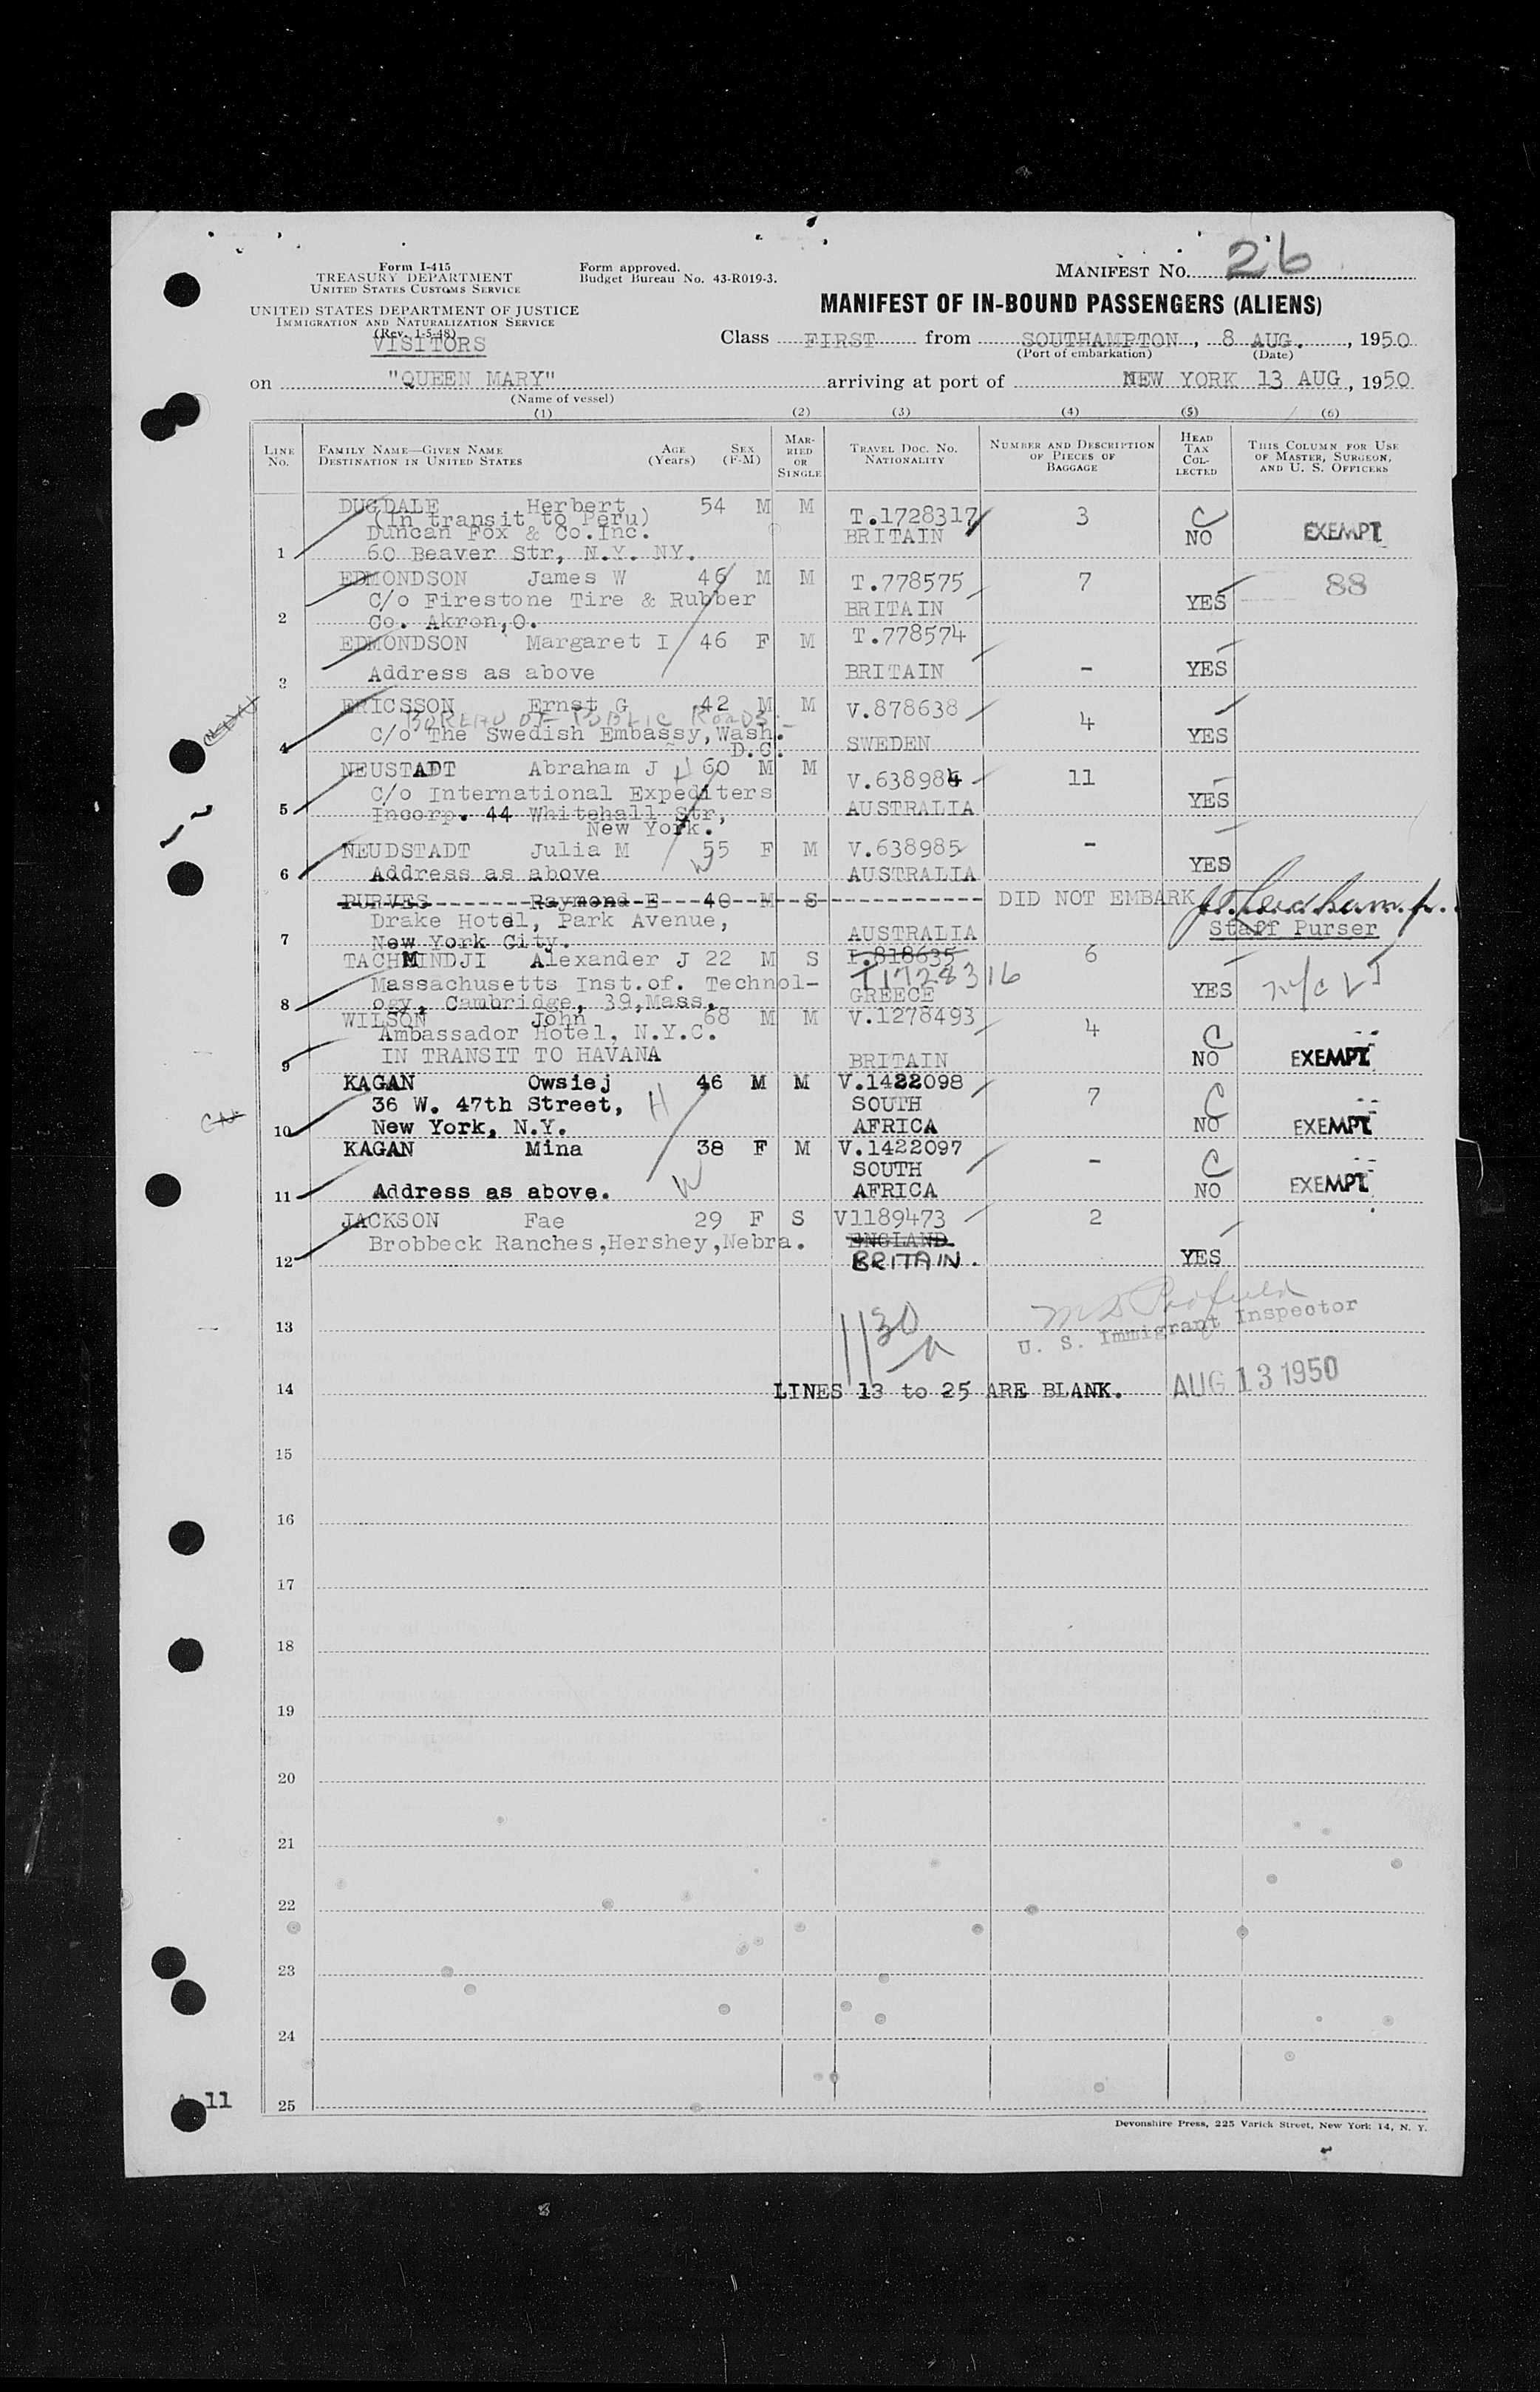 Form I-415
TREASURY DEPARTMENT
UNITED STATES CUSTOMS SERVICE
UNITED STATES DEPARTMENT OF JUSTICE
IMMIGRATION AND NATURALIZATION SERVICE
(Rev. 1-5-48)
VISITORS
Form approved.
Budget Bureau No. 43-R019-3.
MANIFEST NO. 26
MANIFEST OF IN-BOUND PASSENGERS (ALIENS)
Class FIRST from SOUTHAMPTON, 8 AUG., 1950
(Port of embarkation) (Date)
on "QUEEN MARY" arriving at port of NEW YORK 13 AUG, 1950
(Name of vessel)
(1) (2) (3) (4) (5) (6)
LINE No. FAMILY NAME—GIVEN NAME DESTINATION IN UNITED STATES AGE (Years) SEX (F-M) MARRIED OR SINGLE TRAVEL DOC. NO. NATIONALITY NUMBER AND DESCRIPTION OF PIECES OF BAGGAGE HEAD TAX COLLECTED THIS COLUMN FOR USE OF MASTER, SURGEON, AND U. S. OFFICERS
DUGDALE Herbert 54 M M T.1728317 3 C
(In transit to Peru)
Duncan Fox & Co.Inc. BRITAIN NO EXEMPT
1 60 Beaver Str, N.Y. NY.
EDMONDSON James W 46 M M T.778575 7 88
C/o Firestone Tire & Rubber BRITAIN YES
2 Co. Akron,O.
EDMONDSON Margaret I 46 F M T.778574
3 Address as above BRITAIN - YES
ERICSSON Ernst G 42 M M V.878638 4
BUREAU OF PUBLIC ROADS
C/o The Swedish Embassy,Wash. SWEDEN YES
4 D.C.
NEUSTADT Abraham J H 60 M M V.638984 11
C/o International Expediters YES
5 Incorp. 44 Whitehall Str, AUSTRALIA
New York.
NEUDSTADT Julia M W 55 F M V.638985 - YES
6 Address as above AUSTRALIA
PURVES Raymond E 40 M S DID NOT EMBARK
Drake Hotel, Park Avenue, AUSTRALIA Staff Purser
7 New York City.
TACHMINDJI Alexander J 22 M S L.818635 6
T1728316
Massachusetts Inst.of. Technol- GREECE YES
8 ogy, Cambridge, 39,Mass.
WILSON John 68 M M V.1278493 4 C
Ambassador Hotel, N.Y.C.
9 IN TRANSIT TO HAVANA BRITAIN NO EXEMPT
KAGAN Owsiej 46 M M V.1422098 7 C
36 W. 47th Street, H SOUTH
10 New York, N.Y. AFRICA NO EXEMPT
KAGAN Mina 38 F M V.1422097 - C
SOUTH
11 Address as above. W AFRICA NO EXEMPT
JACKSON Fae 29 F S V1189473 2
Brobbeck Ranches,Hershey,Nebra. ENGLAND
12 BRITAIN. YES
13 1130 a
U. S. Immigrant Inspector
14 LINES 13 to 25 ARE BLANK. AUG 13 1950
15
16
17
18
19
20
21
22
23
24
11
25
Devonshire Press, 225 Varick Street, New York 14, N. Y.